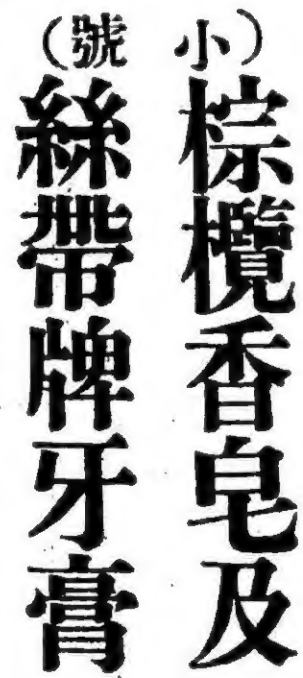 （小號）
棕欖香皂及
絲帶牌牙膏